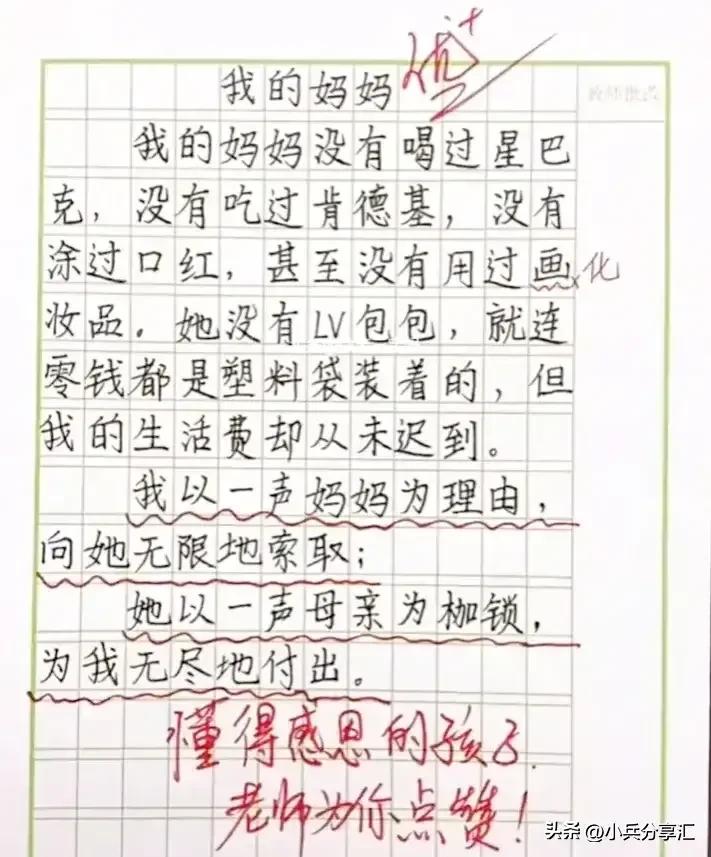 我的妈妈 优+
教师批改
我的妈妈没有喝过星巴
克，没有吃过肯德基，没有
涂过口红，甚至没有用过画化
妆品．她没有LV包包，就连
零钱都是塑料袋装着的，但
我的生活费却从未迟到。
我以一声妈妈为理由，
向她无限地索取；
她以一声母亲为枷锁，
为我无尽地付出。
懂得感恩的孩子．
老师为你点赞！
头条 @小兵分享汇